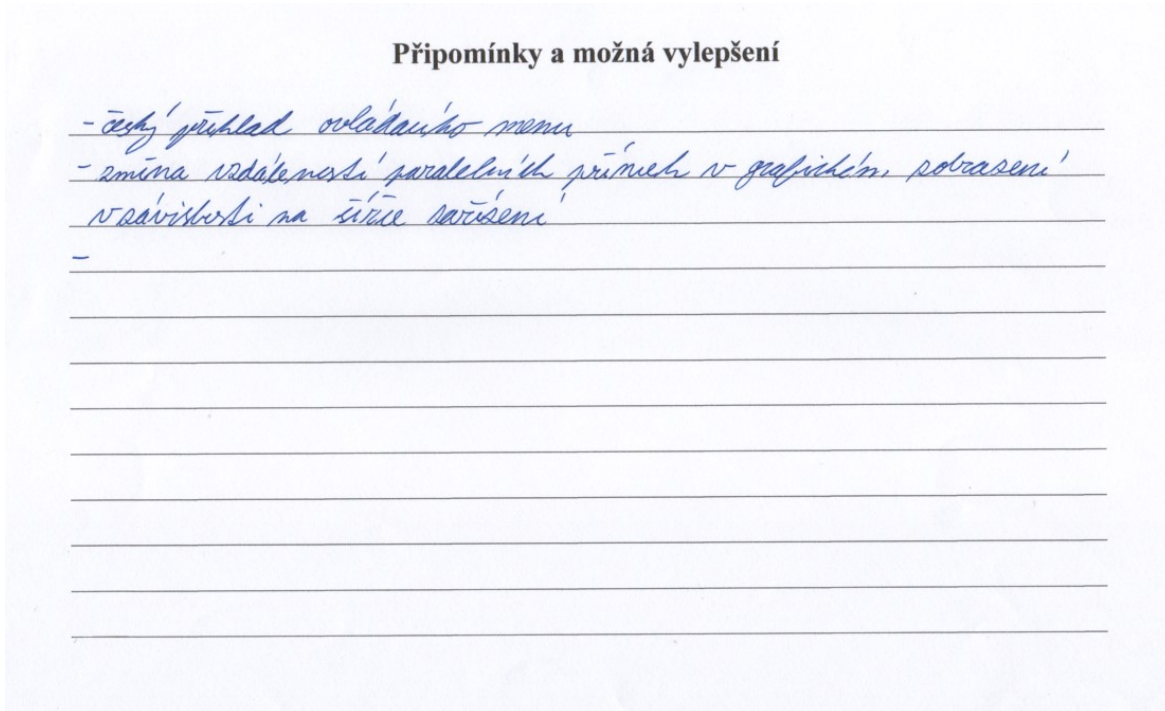 Připomínky a možná vylepšení
- český přehled ovládacího menu
- změna vzdáleností paralelních přímek v grafickém zobrazení
v závislosti na šířce zařízení
-